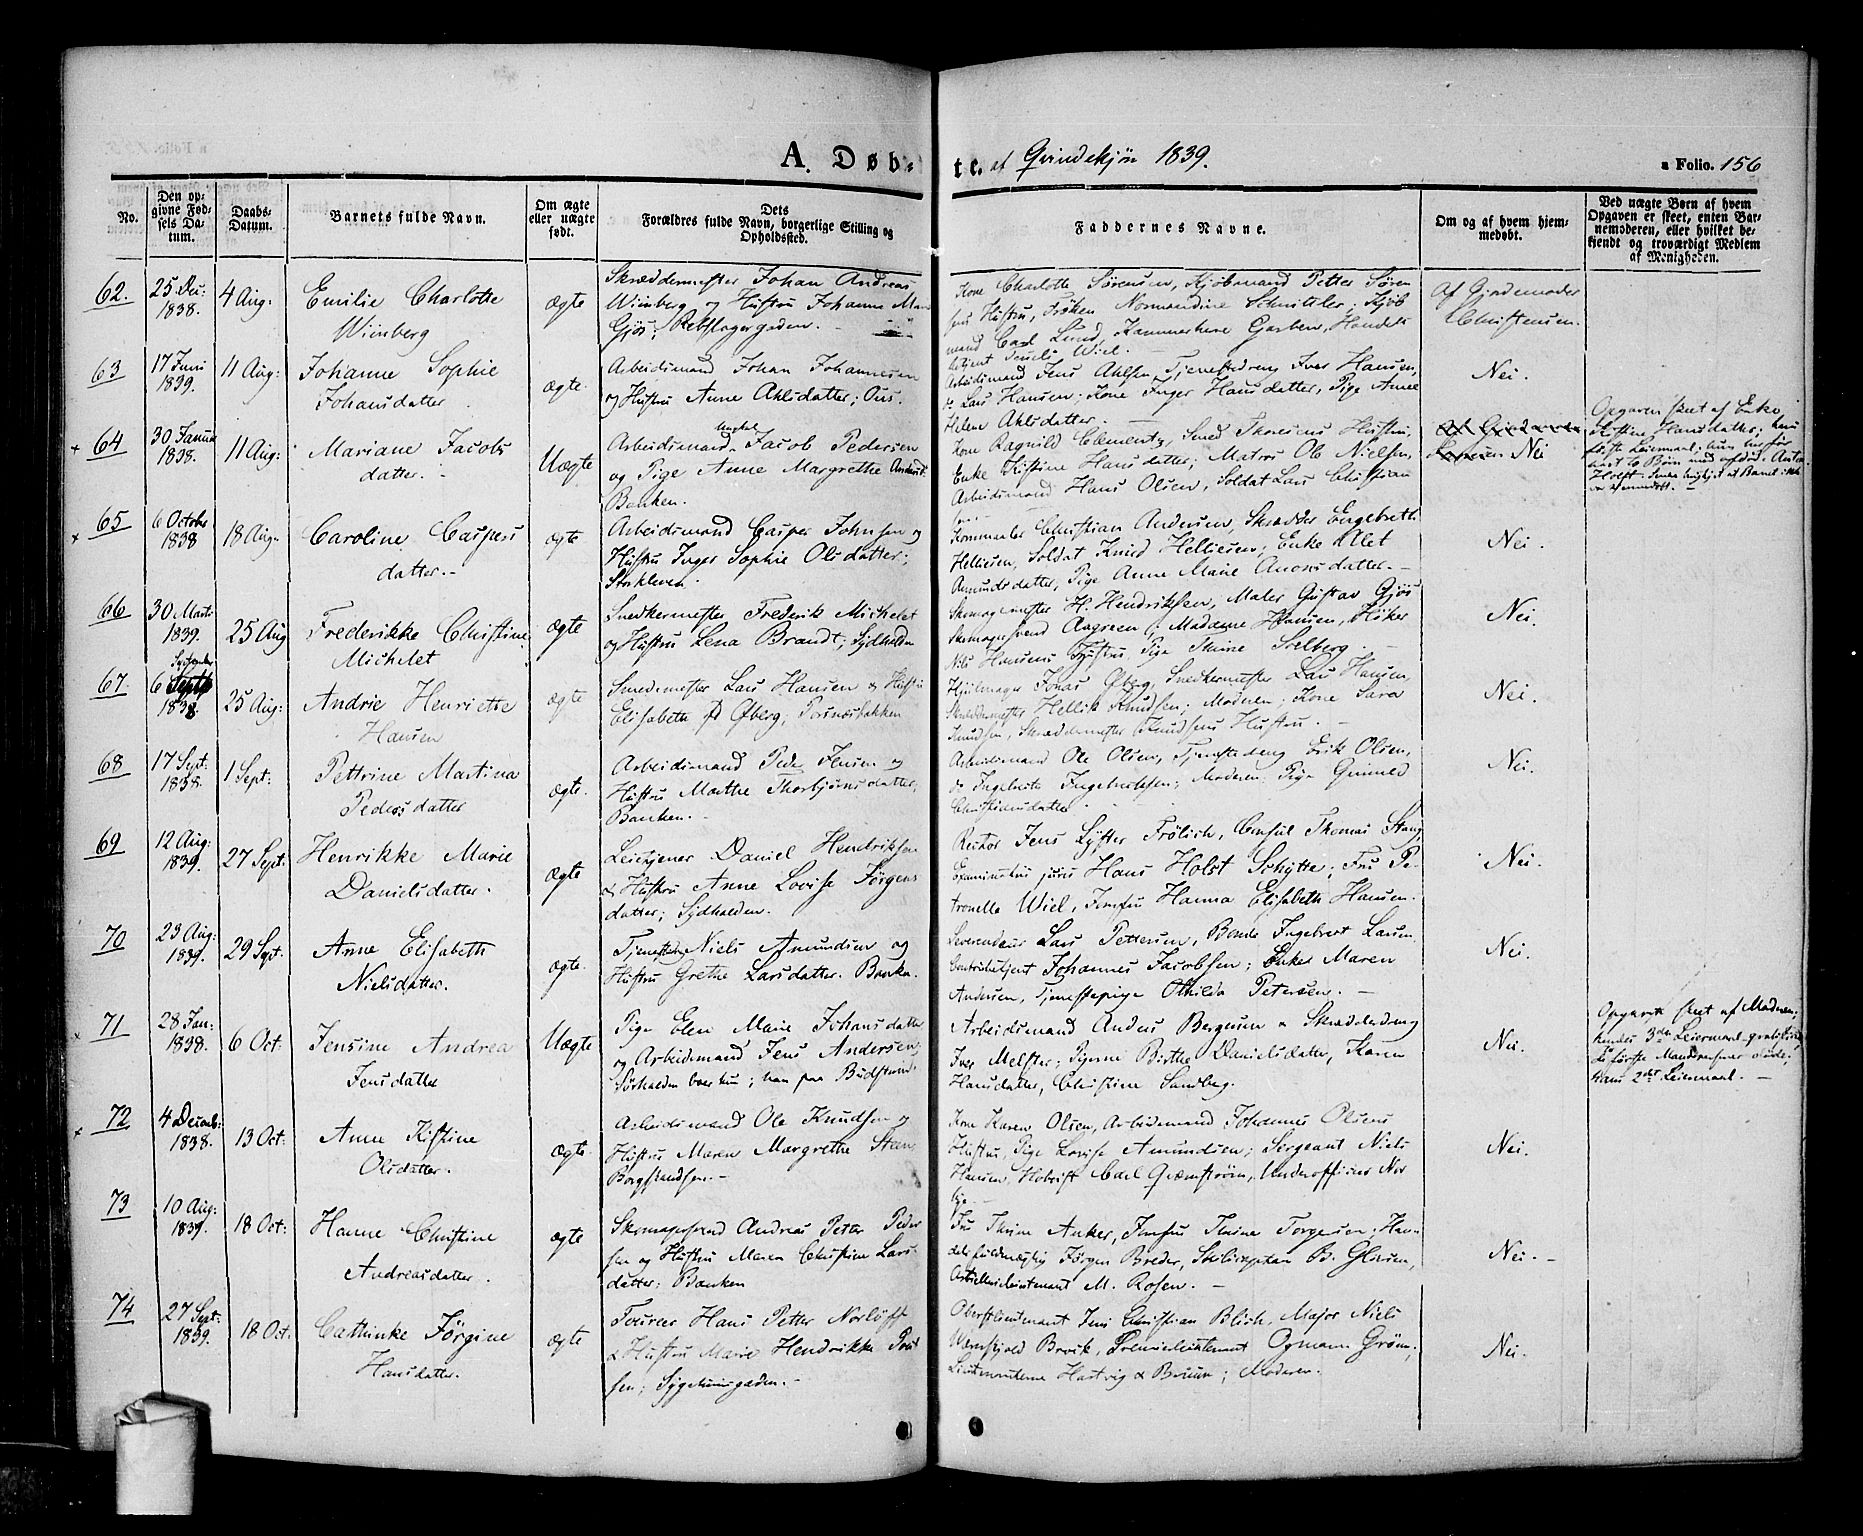 A. Døbte. af Qvindekjøn 1839.
a Folio. 156
No.
Den opgivne Fødsels Datum.
Daabs-Datum.
Barnets fulde Navn.
Om ægte eller uægte født.
Dets Forældres fulde Navn, borgerlige Stilling og Opholdssted.
Faddernes Navne.
Om og af hvem hjemmedøbt.
Ved uægte Børn af hvem Opgaven er skeet, enten Barnemoderen, eller hvilket bekjendt og troværdigt Medlem af Menigheden.
62. 25 Dec: 1838. 4 Aug:
Emilie Charlotte
Wimberg
ægte
Skræddermester Johan Andreas
Wimberg og Hustru Johanne
Gjøs; Rebslagergaden.
Kone Charlotte Sørensen, Kjøbmand Petter Søren
sens Hustru, Frøken Normandine Schnitler; Kjøb
mand Carl Lund, Kammerherre Garben, Handels
betjent Wiel.
Af Gjordemoder
Christensen.
63 17 Juni 1839. 11 Aug:
Johanne Sophie
Johansdatter
ægte.
Arbeidsmand Johan Johannesen
og Hustru Anne Ahlsdatter; Ous.
Arbeidsmand Jens Ahlsen, Tjenestedreng Iver Hansen,
do Lars Hansen; Kone Inger Hansdatter, Pige Anne
Helene Ahlsdatter.
Nei.
64 30 Januar 1838. 11 Aug:
Mariane Jacobs
datter.
Uægte
Arbeidsmand Jacob Pedersen
og Pige Anne Margrethe
Banken.
Kone Ragnild Clementz, Smed Thoresens Hustru,
Enke Kistine Hansdatter; Matros Ole Nielsen,
Arbeidsmand Hans Olsen, Soldat Lars Christian
sen.
Nei
Opgaven skeet af Enke
Kistine Hansdatter; hans
første Leiermaal; hun har før
havt to Børn med afdød Anton
Holst.
65 6 October 1838 18 Aug.
Caroline Caspers
datter.
ægte
Arbeidsmand Casper Johnsen og
Hustru Inger Sophie Olsdatter;
Storkleven.
Kornmaaler Christian Andersen, Skrædder Engebreth
Helliesen, Soldat Knud Helliesen; Enke Alet
Amundsdatter, Pige Anne Marie Amonsdatter.
Nei.
66 30 Marts 1839. 25 Aug
Frederikke Christine
Michelet
ægte
Snedkermester Frederik Michelet
og Hustru Lena Brandt; Sydhalden
Skomagermester H. Hendriksen, Maler Gustav Gjøs
Skomagersvend Aagreen; Madame Hansen, Høker
Nils Hansens Hustru, Pige Thrine Solberg.
Nei.
67 6 September 1838. 25 Aug:
Andrie Henriette
Hansen
ægte
Smedemester Lars Hansen & Hustru
Elisabeth f. Øberg; Tursnæsbakken
Hjulmager Jonas Øberg, Snedkermester Lars Hansen,
Skræddermester Hellik Knudsen; Moderen; Kone Sara
Knudsen, Skræddermester Knudsens Hustru.
Nei.
68 17 Sept: 1838. 1 Sept:
Pettrine Martina
Pedersdatter
ægte.
Arbeidsmand Peder Jensen og
Hustru Marthe Thorbjørnsdatter;
Banken.
Arbeidsmand Ole Olsen, Tjenestedreng Erik Olsen,
do Ingebret Ingebretsen; Moderen, Pige Gunild
Christiansdatter
Nei.
69 12 Aug: 1839. 27 Sept:
Henrikke Marie
Danielsdatter.
ægte
Leietjener Daniel Hendriksen
& Hustru Anne Lovise Jørgens
datter; Sydhalden.
Rector Jens Lyster Frölich, Consul Thomas Stang
Examinatus juris Hans Holst Schytte; Fru Pe-
tronelle Wiel, Jomfru Hanna Elisabeth Hansen.
Nei.
70 23 Aug: 1839. 29 Sept.
Anne Elisabeth
Nielsdatter.
ægte
Tjenestedreng Niels Amundsen og
Hustru Grethe Larsdatter. Banken
Leverandeur Lars Pettersen, Bonde Ingebret Larsen,
Johannes Jacobsen; Enke Maren
Andersen, Tjenestepige Othilda Petersen.
Nei.
71 28 Jan: 1838. 6 Oct:
Jensine Andrea
Jensdatter
Uægte
Pige Elen Marie Johansdatter
og Arbeidsmand Jens Andersen,
Sørhalden boer hun; han paa Budstrand.
Arbeidsmand Anders Bergersen & Skrædderdreng
Iver Melster; Pigerne Birthe Danielsdatter, Karen
Hansdatter, Christine Sandberg.
Nei.
Opgaven skeet af Moderen;
hendes 3die Leiermaal
de første Mandspersoner døde;
hans 2det Leiermaal.
72 4 Decemb: 1838. 13 Oct:
Anne Kistine
Olsdatter.
ægte
Arbeidsmand Ole Knudsen og
Hustru Maren Margrethe Steen;
Kone Karen Olsen, Arbeidsmand Johannes Olsens
Hustru, Pige Lovise Amundsen; Sergeant Niels
Hansen, Hoboist Carl Qvarnstrøm, Underofficier Nor
bye.
Nei.
73 10 Aug: 1839. 18 Oct:
Hanne Christine
Andreasdatter.
ægte
Skomagersvend Andreas Peter Peder
sen og Hustru Maren Christine Lars
datter; Banken
Fru Thrine Anker, Jomfru Thrine Torgersen; Han
delsfuldmægtig Jørgen Breder, B. Olsen,
Artillerielieutenant M. Rosen.
Nei.
74 27 Sept: 1839. 18 Oct:
Cathinke Jørgine
Hansdatter.
ægte
Fourer Hans Petter Norløff
& Hustru Marie Hendrikke Poul
sen;
Oberstlieutenant Jens Christian Blich, Major Niels
Werenskjold Brvik, Premierlieutenant Ogmann Grøm;
Lieutenanterne Hartvig & Bruun; Moderen.
Nei.